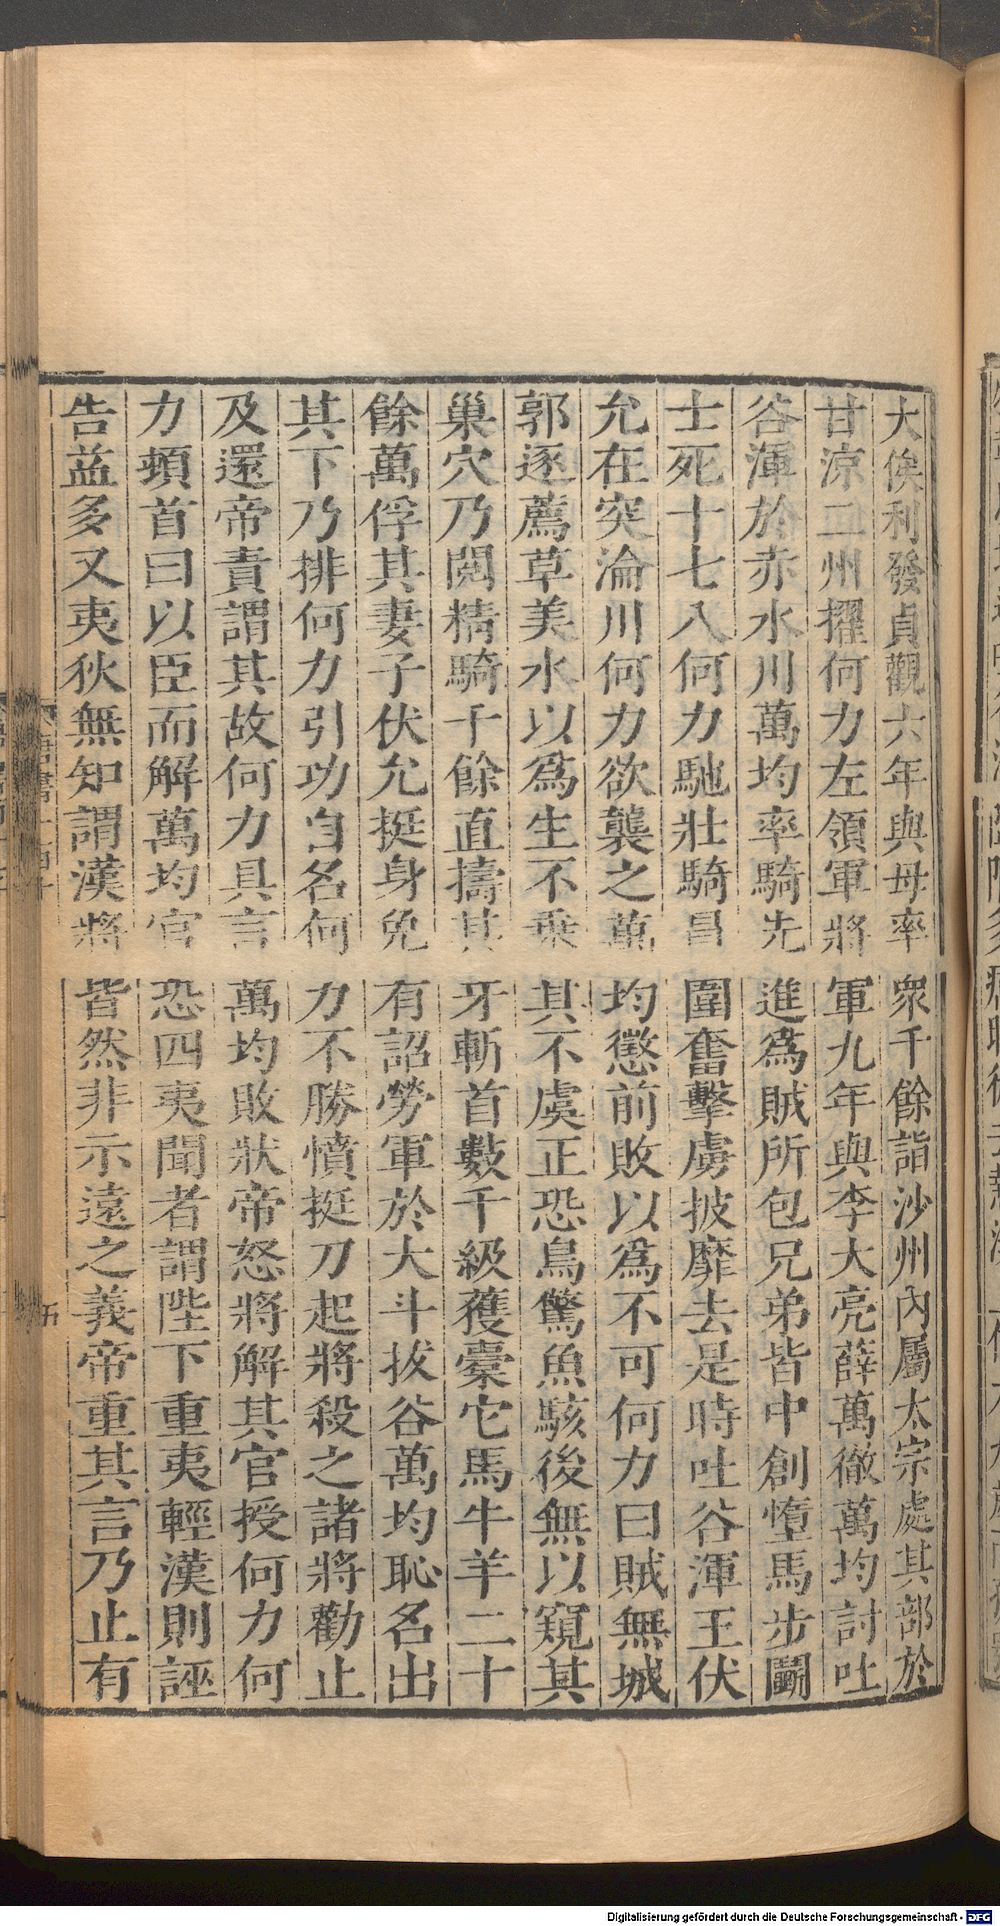 大俟利發貞觀六年與母率衆千餘詣沙州內屬太宗處其部於
甘涼二州擢何力左領軍將軍九年與李大亮薛萬徹萬均討吐
谷渾於赤水川萬均率騎先進爲賊所包兄弟皆中創墮馬步鬭
士死十七八何力馳壯騎冒圍奮擊虜披靡去是時吐谷渾王伏
允在突淪川何力欲襲之萬均懲前敗以爲不可何力曰賊無城
郭逐薦草美水以爲生不乗其不虞正恐鳥驚魚駭後無以窺其
巢穴乃閱精騎千餘直擣其牙斬首數千級獲橐它馬牛羊二十
餘萬俘其妻子伏允挺身免有詔勞軍於大斗拔谷萬均恥名出
其下乃排何力引功自名何力不勝憤挺刀起將殺之諸將勸止
及還帝責謂其故何力具言萬均敗狀帝怒將解其官授何力何
力頓首曰以臣而解萬均官恐四夷聞者謂陛下重夷輕漢則誣
告益多又夷狄無知謂漢將皆然非示遠之義帝重其言乃止有
五
Digitalisierung gefördert durch die Deutsche Forschungsgemeinschaft - DFG